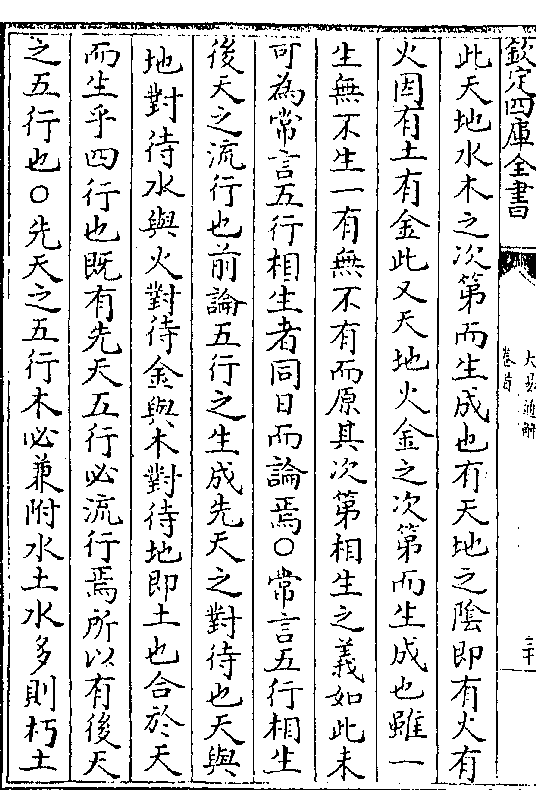 欽定四庫全書
大易通解
卷首
三十
此天地水木之次第而生成也有天地之陰即有火有
火因有土有金此又天地火金之次第而生成也雖一
生無不生一有無不有而原其次第相生之義如此未
可為常言五行相生者同日而論焉○常言五行相生
後天之流行也前論五行之生成先天之對待也天與
地對待水與火對待金與木對待地即土也合於天
而生乎四行也既有先天五行必流行焉所以有後天
之五行也○先天之五行木必兼附水土水多則朽土